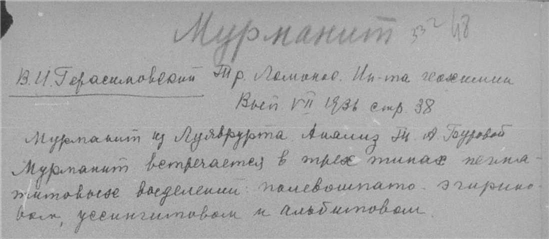 Мурманит 33248
В.И.Герасимовский Тр. Ломонос. Ин-та геохимии
Вып VII 1936 стр. 38
Мурманит из Луяврурта Анализ Т. А Буровой
Мурманит встречается в трех типах пегма-
титовых выделений: полевошпато-эгирино-
вом, уссингитовом и альбитовом.